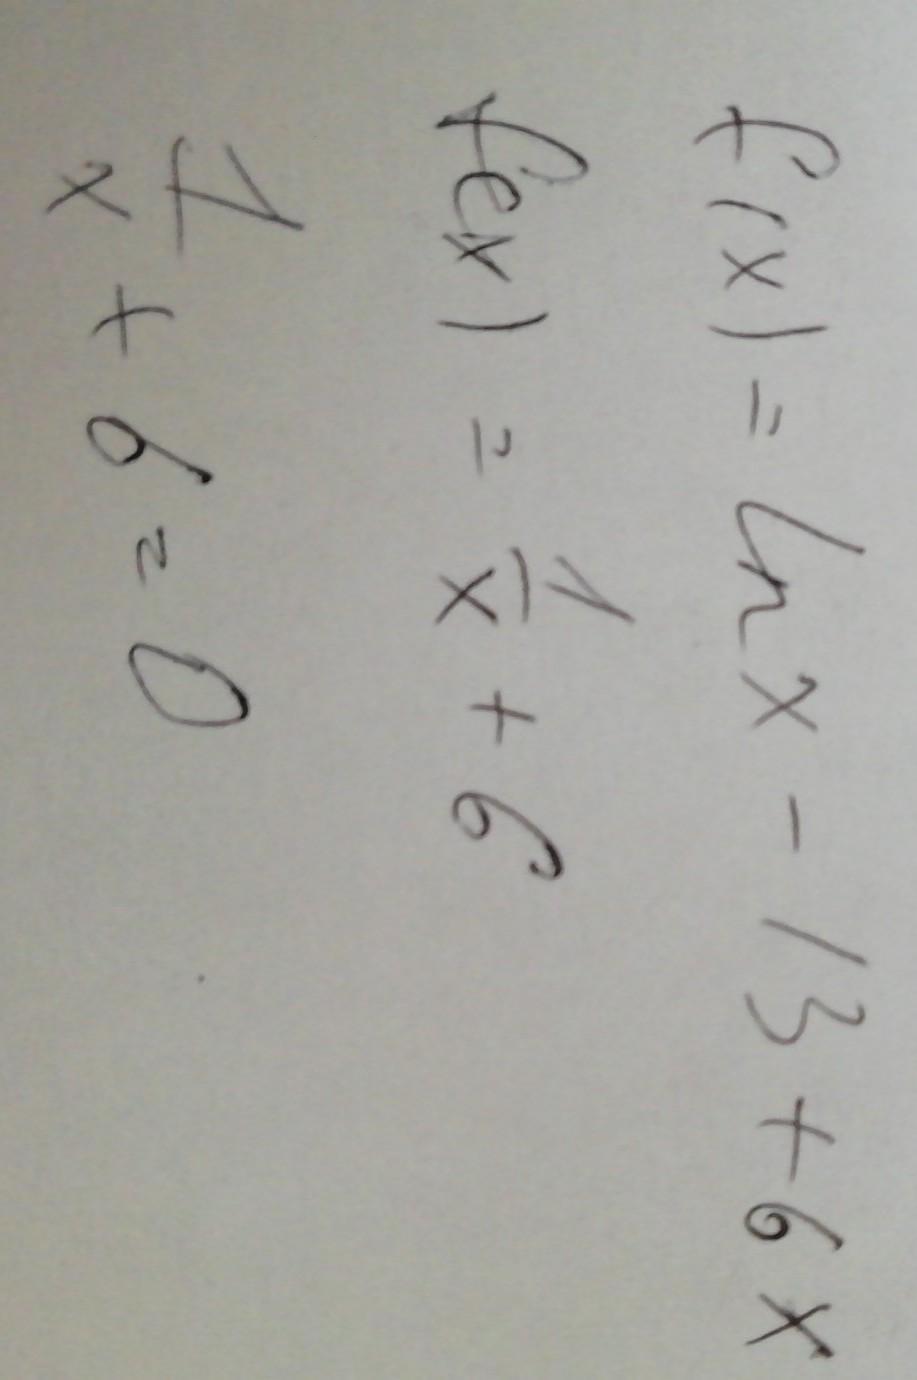 f(x) = ln x - 13 + 6x
f(x) = 1/x + 6
1/x + 6 = 0